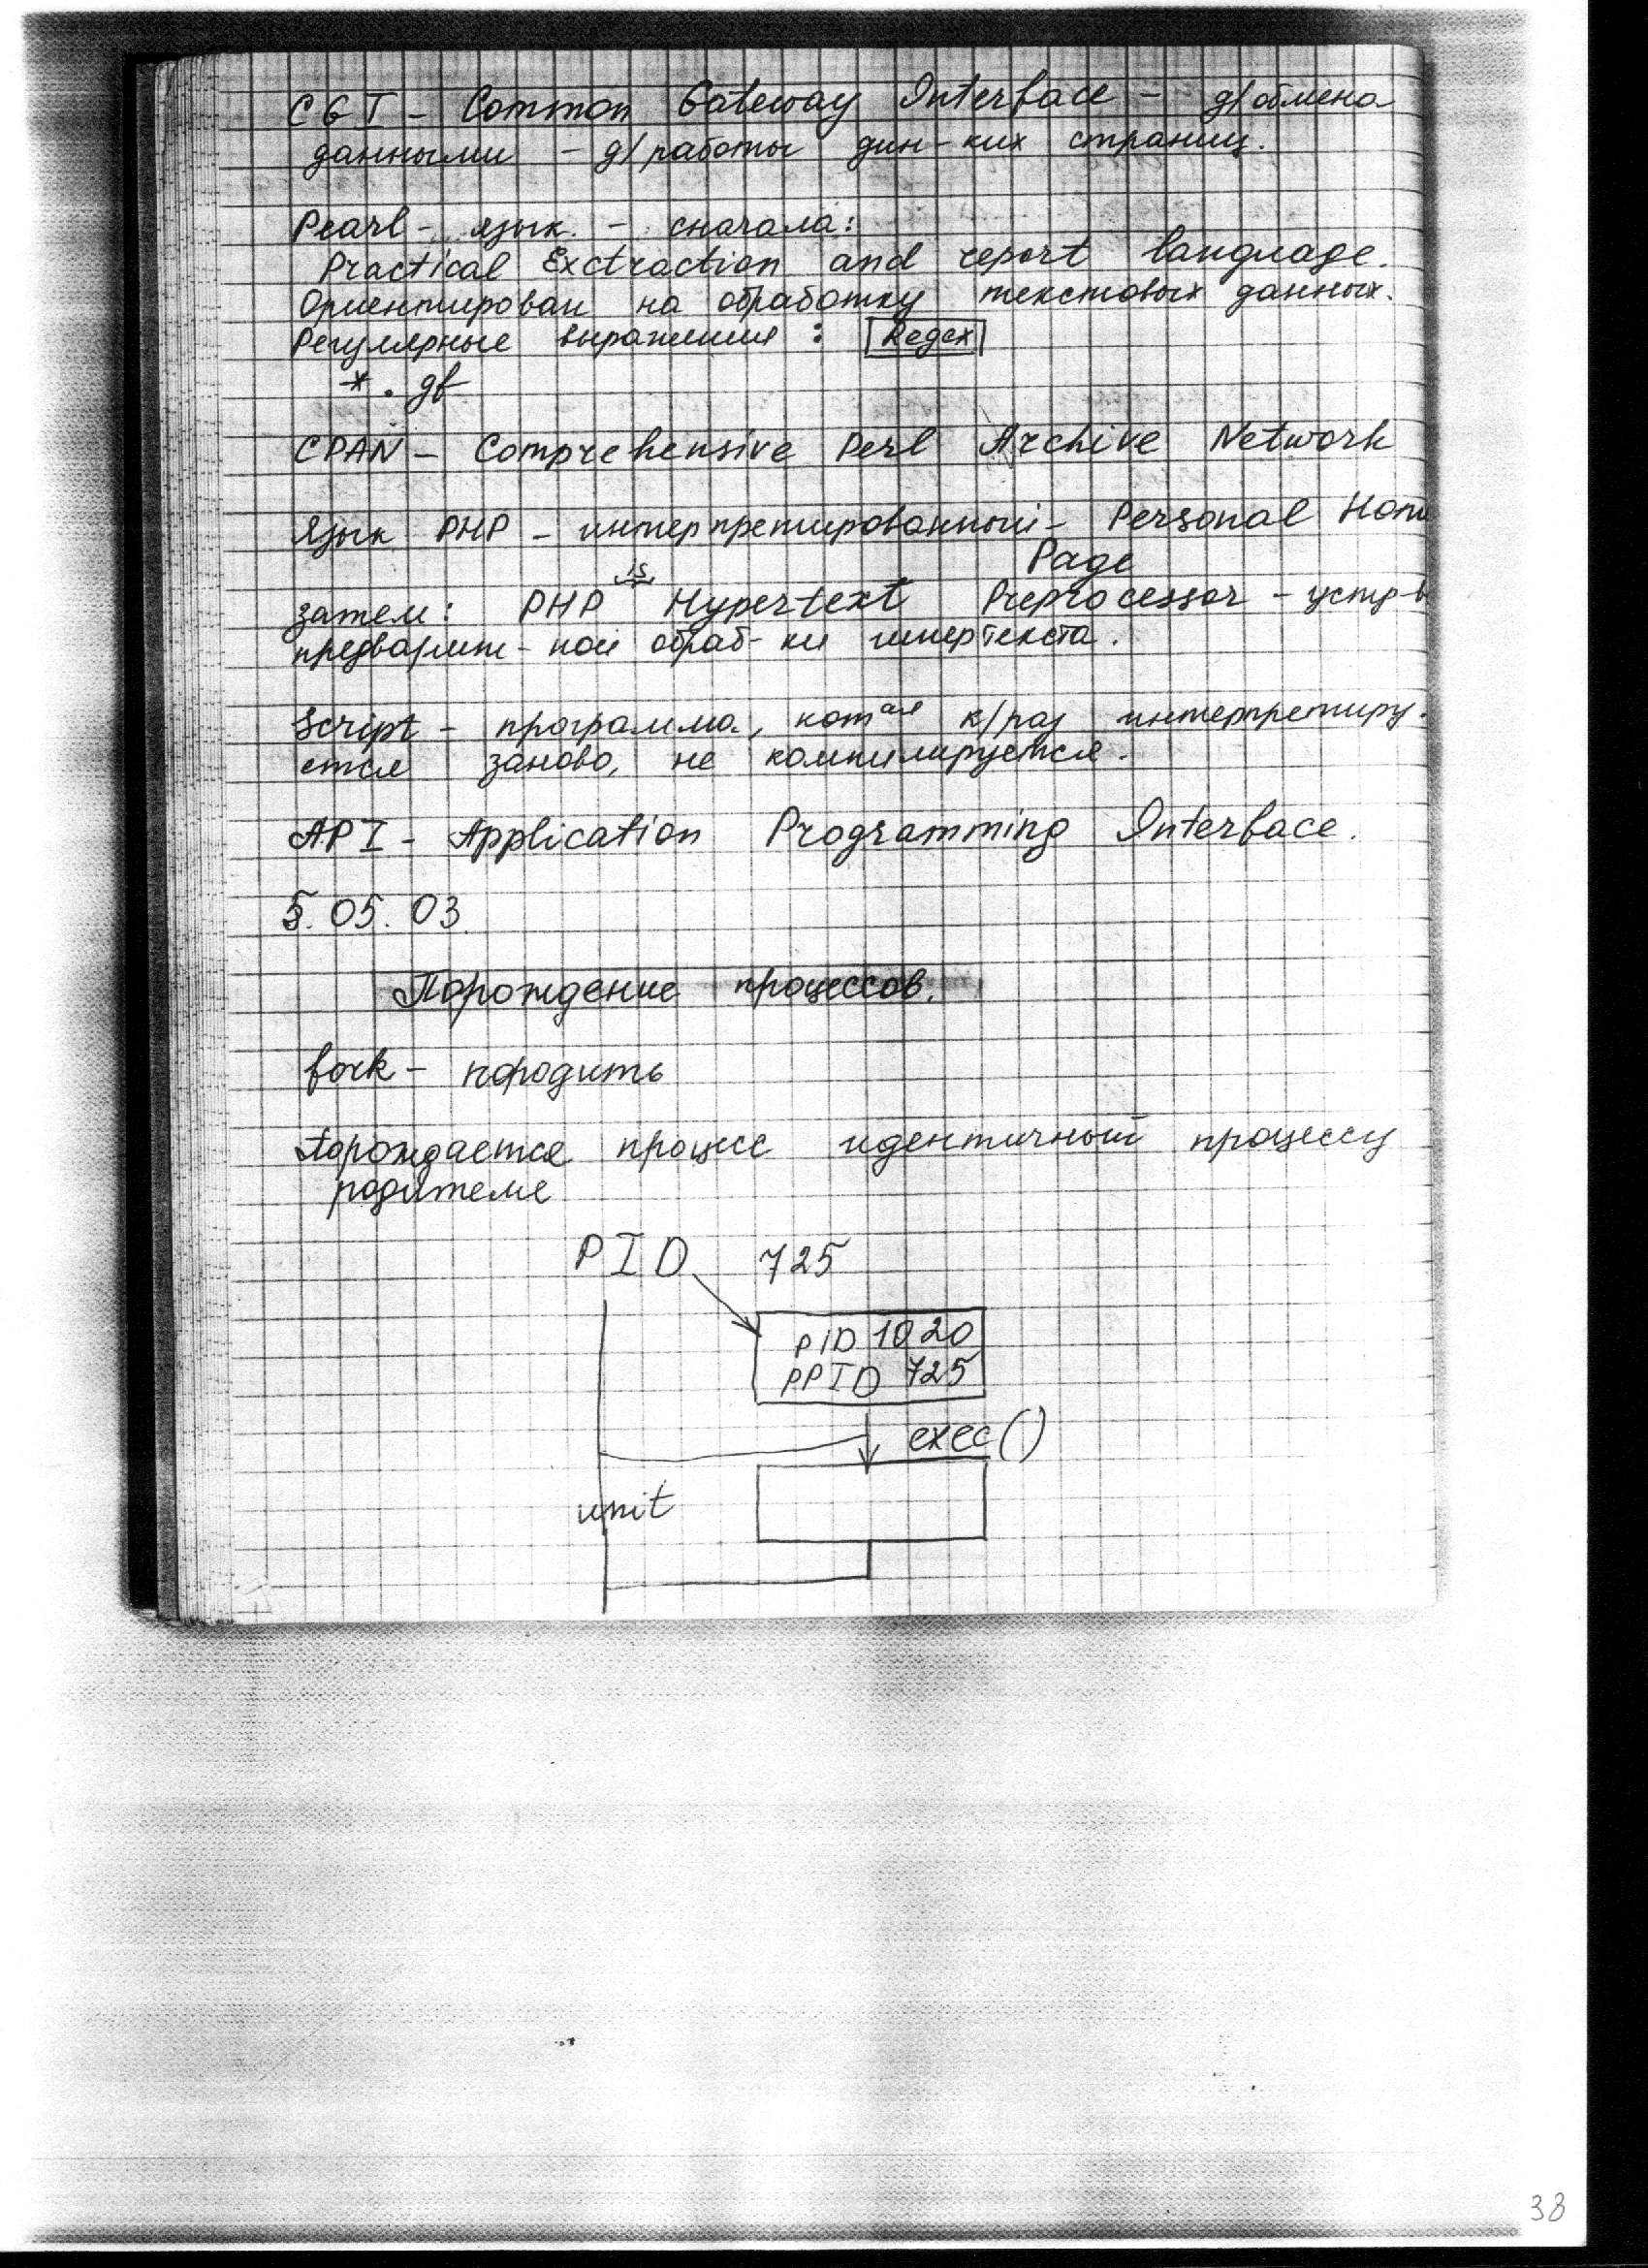 CGI - Common Gateway Interface - д/обмена
данными - д/работы дин-ких страниц.
Pearl - язык - сначала:
Practical Exctraction and report language.
Ориентирован на обработку текстовых данных.
Регулярные выражения : Regex
*.
CPAN - Comprehensive Perl Archive Network
Язык PHP - интерпретированный - Personal Home
Page
is
затем: PHP Hypertext Preprocessor - устр-в
предварит-ной обраб-ки гипертекста.
Script - программа, котая к/раз интерпретиру-
ется заново, не компилируется.
API - Application Programming Interface.
5.05.03.
Порождение процессов.
fork - породить
Порождается процесс идентичный процессу
родителя
PID 725
PID 1020
PPID 725
exec()
unit
38